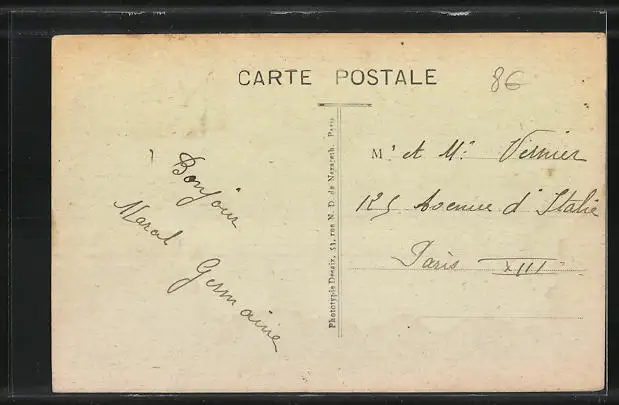 CARTE POSTALE
86
Bonjour
Marcel Germaine
Phototypie Desaix, 53, rue N. D. de Nazareth. Paris
Mr et Me Vernier
125 Avenue d'Italie
Paris XIII